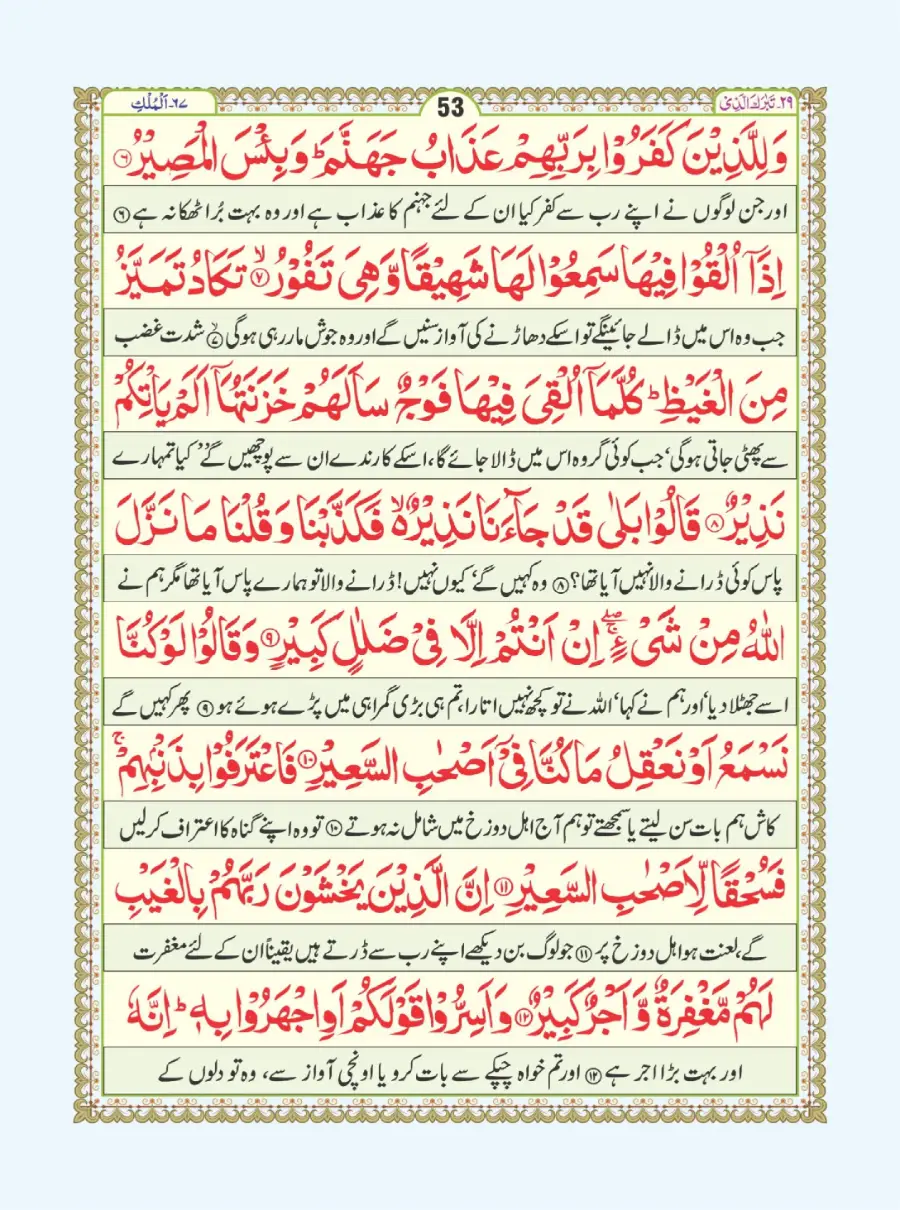 ٢٩-تَبٰرَكَ الَّذِىْ
53
٦٧-اَلْمُلْكِ
وَلِلَّذِيْنَ كَفَرُوْا بِرَبِّهِمْ عَذَابُ جَهَنَّمَ ؕ وَبِئْسَ الْمَصِيْرُ ۝٦
اور جن لوگوں نے اپنے رب سے کفر کیا ان کے لئے جہنم کا عذاب ہے اور وہ بہت بُرا ٹھکانہ ہے ۝٦
اِذَاۤ اُلْقُوْا فِيْهَا سَمِعُوْا لَهَا شَهِيْقًا وَّهِىَ تَفُوْرُ ۙ۝٧ تَكَادُ تَمَيَّزُ
جب وہ اس میں ڈالے جائینگے تو اسکے دھاڑنے کی آواز سنیں گے اور وہ جوش مار رہی ہوگی ۙ۝٧ شدت غضب
مِنَ الْغَيْظِ ؕ كُلَّمَاۤ اُلْقِىَ فِيْهَا فَوْجٌ سَاَلَهُمْ خَزَنَتُهَاۤ اَلَمْ يَاْتِكُمْ
سے پھٹی جاتی ہوگی، جب کوئی گروہ اس میں ڈالا جائے گا، اسکے کارندے ان سے پوچھیں گے ’’کیا تمہارے
نَذِيْرٌ ۝٨ قَالُوْا بَلٰى قَدْ جَآءَنَا نَذِيْرٌ ۙ۬ فَكَذَّبْنَا وَقُلْنَا مَا نَزَّلَ
پاس کوئی ڈرانے والا نہیں آیا تھا؟ ۝٨ وہ کہیں گے‘ کیوں نہیں! ڈرانے والا تو ہمارے پاس آیا تھا مگر ہم نے
اللّٰهُ مِنْ شَىْءٍ ۖۚ اِنْ اَنْتُمْ اِلَّا فِىْ ضَلٰلٍ كَبِيْرٍ ۝٩ وَقَالُوْا لَوْ كُنَّا
اسے جھٹلا دیا‘ اور ہم نے کہا‘ اللہ نے تو کچھ نہیں اتارا، تم ہی بڑی گمراہی میں پڑے ہوئے ہو ۝٩ پھر کہیں گے
نَسْمَعُ اَوْ نَعْقِلُ مَا كُنَّا فِىْۤ اَصْحٰبِ السَّعِيْرِ ۝١٠ فَاعْتَرَفُوْا بِذَنْۢبِهِمْ ۚ
کاش ہم بات سن لیتے یا سمجھتے تو ہم آج اہل دوزخ میں شامل نہ ہوتے ۝١٠ تو وہ اپنے گناہ کا اعتراف کرلیں
فَسُحْقًا لِّاَصْحٰبِ السَّعِيْرِ ۝١١ اِنَّ الَّذِيْنَ يَخْشَوْنَ رَبَّهُمْ بِالْغَيْبِ
گے، لعنت ہو اہل دوزخ پر ۝١١ جو لوگ بن دیکھے اپنے رب سے ڈرتے ہیں یقیناً ان کے لئے مغفرت
لَهُمْ مَّغْفِرَةٌ وَّاَجْرٌ كَبِيْرٌ ۝١٢ وَاَسِرُّوْا قَوْلَكُمْ اَوِ اجْهَرُوْا بِهٖ ؕ اِنَّهٗ
اور بہت بڑا اجر ہے ۝١٢ اور تم خواہ چپکے سے بات کرو یا اونچی آواز سے، وہ تو دلوں کے